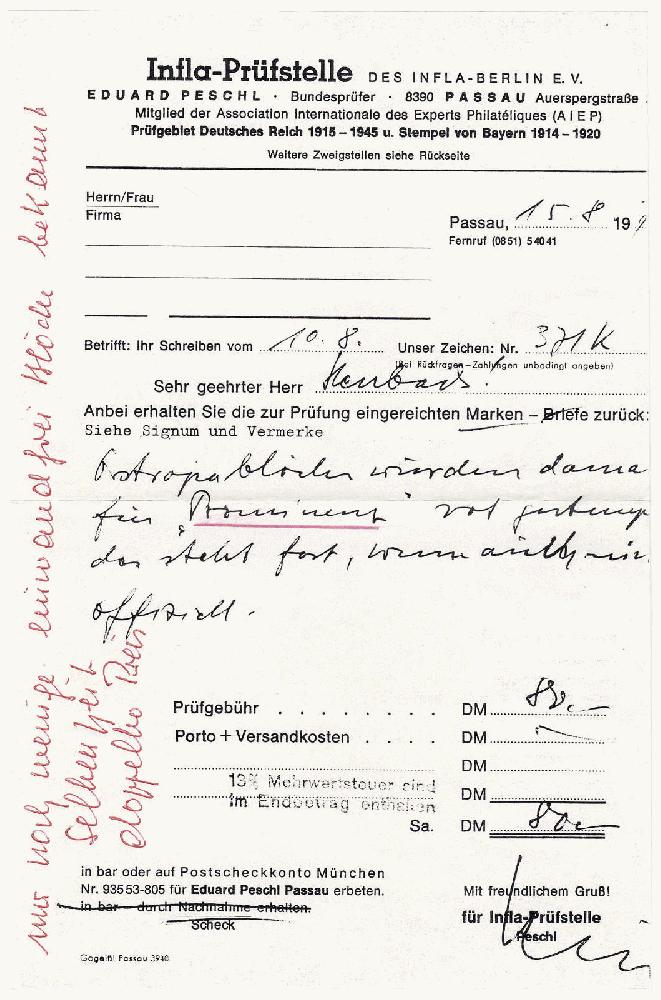 Infla-Prüfstelle DES INFLA-BERLIN E. V.
EDUARD PESCHL · Bundesprüfer · 8390 PASSAU Auerspergstraße
Mitglied der Association Internationale des Experts Philatéliques (A I E P)
Prüfgebiet Deutsches Reich 1915 – 1945 u. Stempel von Bayern 1914 – 1920
Weitere Zweigstellen siehe Rückseite
Herrn/Frau
Firma
Passau, 15. 8 19
Fernruf (0851) 54041
Betrifft: Ihr Schreiben vom 10. 8. Unser Zeichen: Nr. 371K
(Bei Rückfragen – Zahlungen unbedingt angeben)
Sehr geehrter Herr
Anbei erhalten Sie die zur Prüfung eingereichten Marken – Briefe zurück:
Siehe Signum und Vermerke
Ostropablöcke wurden dama
für „Prominent" rot gestemp
das steht fest, wenn auch in
offiziell.
Prüfgebühr . . . . . . . DM 80.–
Porto + Versandkosten . . . . DM –
DM
13% Mehrwertsteuer sind
im Endbetrag enthalten DM
Sa. DM 80.–
in bar oder auf Postscheckkonto München
Nr. 93553-805 für Eduard Peschl Passau erbeten.
in bar – durch Nachnahme erhalten.
Scheck
Mit freundlichem Gruß!
für Infla-Prüfstelle
Peschl
Gogeißl Passau 3940
nur noch wenige einwandfrei Blöcke bekannt
Seltenheit
doppelter Preis